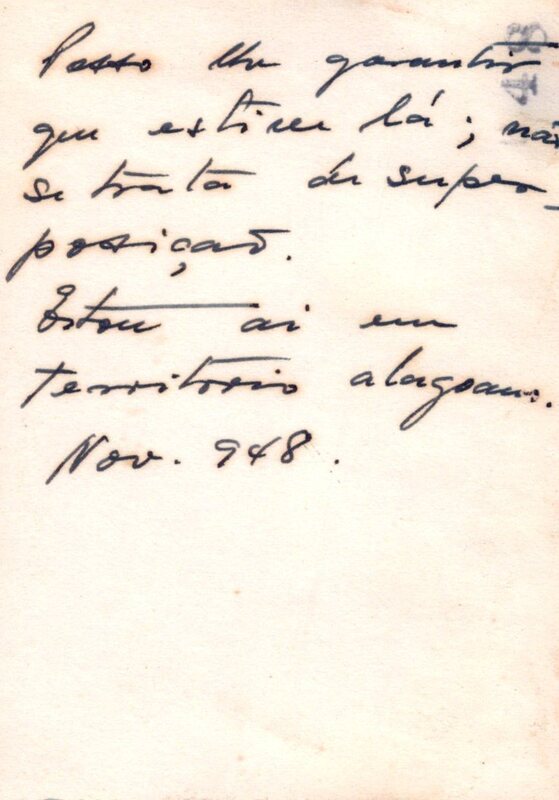 Posso lhe garantir
que estive lá; não
se trata de super-
posição.
Estou ai em
territorio alagoano.
Nov. 948.
43